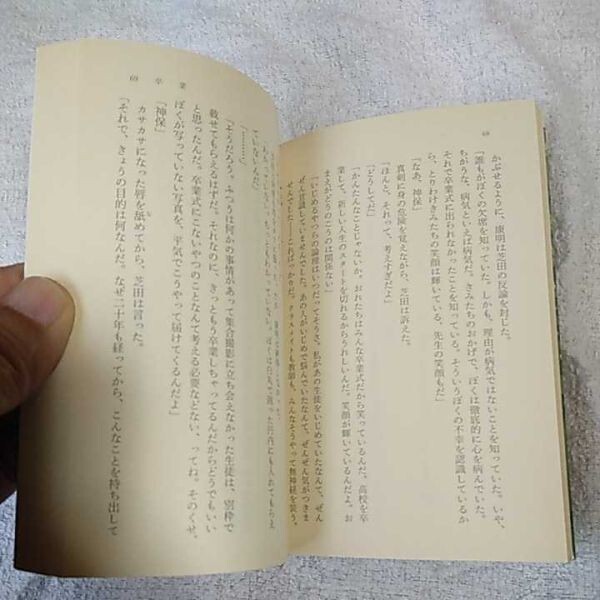 68
かぶせるように、康明は芝田の反論を封じた。
「誰もがぼくの欠席を知っていた。しかも、理由が病気ではないことを知っていた。いや、
ちがうな、病気といえば病気だ。きみたちのおかげで、ぼくは徹底的に心を病んでいた。
それで卒業式に出られなかったことを知っている。そういうぼくの不幸を認識しているか
ら、とりわけきみたちの笑顔は輝いている、先生の笑顔もだ」
「なあ、神保」
真剣に身の危険を覚えながら、芝田は訴えた。
「ほんと、それって、考えすぎだよ」
「どうしてだ」
「かんたんなことじゃないか。おれたちはみんな卒業式だから笑っているんだ。高校を卒
業して、新しい人生のスタートを切れるからうれしいんだ。笑顔が輝いているんだよ。お
まえがどうのこうのは関係ない」
「いじめるやつらの論理はいつだってそうさ。私があの生徒をいじめていたなんて、ぜん
ぜん意識していませんでした。あの人がいじめで悩んでいたなんて、ぜんぜん気がつきま
せんでした――こればっかりだ。クラスメイトも教師も、みんなそうやって無神経を装う。
69 卒業
ていないんだ」
「………」
「そうだろう。ふつうは何かの事情があって集合撮影に立ち会えなかった生徒は、別枠で
載せてもらえるはずだ。それなのに、きっともう卒業しちゃってるんだからどうでもいい
と思ったんだ。卒業式にこないやつのことなんて考える必要などない、ってね。そのくせ、
ぼくが写っていない写真を、平気でこうやって届けてくるんだよ」
「神保」
カサカサになった唇を舐めてから、芝田は言った。
「それで、きょうの目的は何なんだ。なぜ二十年も経ってから、こんなことを持ち出して